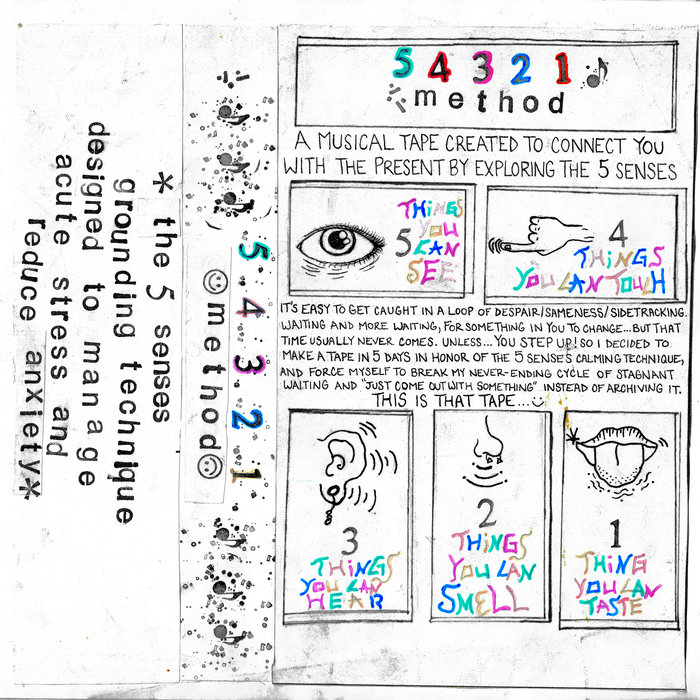 * the 5 senses
grounding technique
designed to manage
acute stress and
reduce anxiety*
5 4 3 2 1
method
5 4 3 2 1
method
A MUSICAL TAPE CREATED TO CONNECT YOU
WITH THE PRESENT BY EXPLORING THE 5 SENSES
5 THINGS
YOU
CAN
SEE
4
THINGS
YOU CAN TOUCH
IT'S EASY TO GET CAUGHT IN A LOOP OF DESPAIR/SAMENESS/SIDETRACKING.
WAITING AND MORE WAITING, FOR SOMETHING IN YOU TO CHANGE... BUT THAT
TIME USUALLY NEVER COMES. UNLESS... YOU STEP UP! SO I DECIDED TO
MAKE A TAPE IN 5 DAYS IN HONOR OF THE 5 SENSES CALMING TECHNIQUE,
AND FORCE MYSELF TO BREAK MY NEVER-ENDING CYCLE OF STAGNANT
WAITING AND "JUST COME OUT WITH SOMETHING" INSTEAD OF ARCHIVING IT.
THIS IS THAT TAPE...
3
THINGS
YOU CAN
HEAR
2
THINGS
YOU CAN
SMELL
1
THING
YOU CAN
TASTE